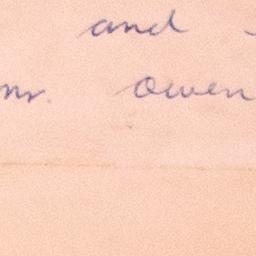 and
mr. Owen